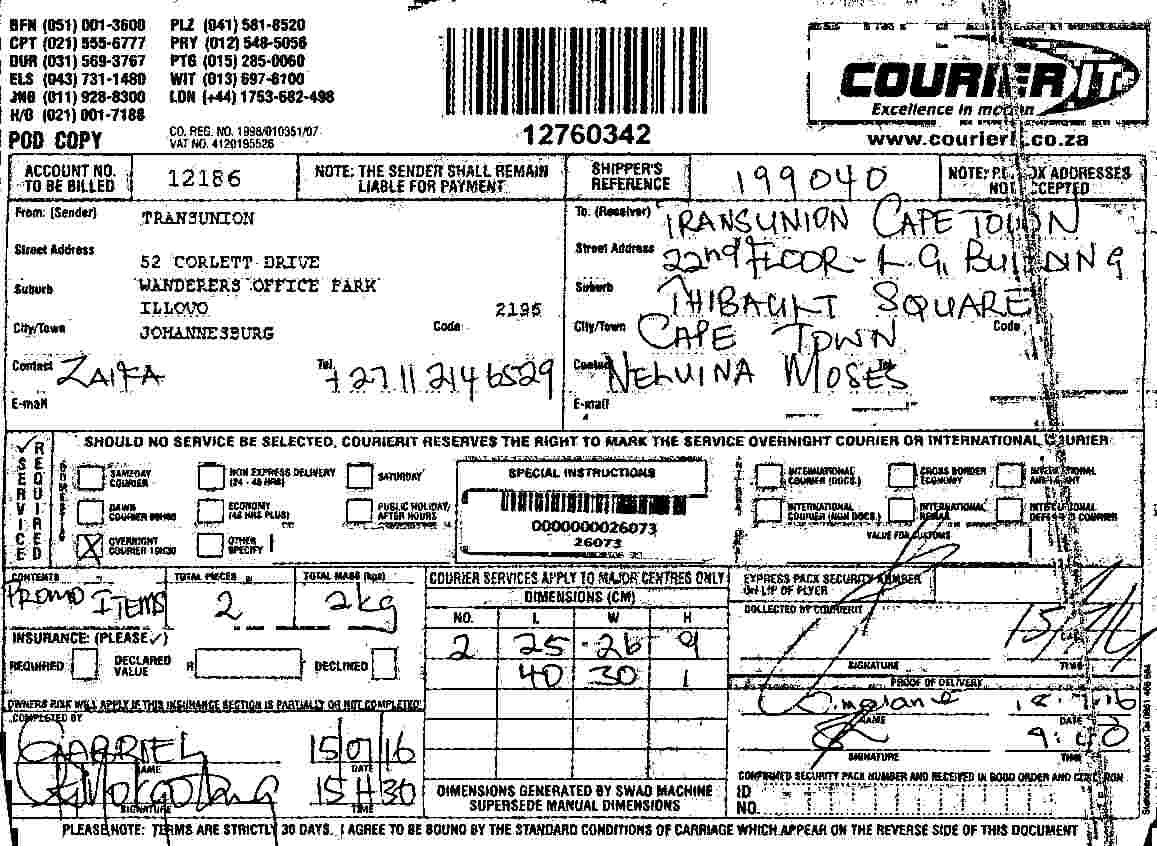 BFN (051) 001-3600 PLZ (041) 581-8520
CPT (021) 555-6777 PRY (012) 548-5056
DUR (031) 569-3767 PTG (015) 285-0060
ELS (043) 731-1480 WIT (013) 697-6100
JNB (011) 928-8300 LDN (+44) 1753-682-498
H/O (021) 001-7188
POD COPY
CO. REG. NO. 1998/010351/07
VAT NO. 4120195526
12760342
COURIER IT
Excellence in motion
www.courierit.co.za
ACCOUNT NO. TO BE BILLED 12186
NOTE: THE SENDER SHALL REMAIN LIABLE FOR PAYMENT
SHIPPER'S REFERENCE 199040
NOTE: P.O. BOX ADDRESSES NOT ACCEPTED
From: (Sender) TRANSUNION
Street Address 52 CORLETT DRIVE
Suburb WANDERERS OFFICE PARK
ILLOVO 2196
City/Town JOHANNESBURG Code
Contact ZAIFA Tel. +27 11 214 6529
E-mail
To: (Receiver) TRANSUNION CAPE TOWN
Street Address 22nd FLOOR - L.G. BUILDING
Suburb THIBAULT SQUARE
City/Town CAPE TOWN Code
Contact NELUINA MOSES Tel.
E-mail
SHOULD NO SERVICE BE SELECTED, COURIERIT RESERVES THE RIGHT TO MARK THE SERVICE OVERNIGHT COURIER OR INTERNATIONAL COURIER
SERVICE REQUIRED
DOMESTIC
SAMEDAY COURIER
NON EXPRESS DELIVERY (24 - 48 HRS)
SATURDAY
DAWN COURIER
ECONOMY (48 HRS PLUS)
PUBLIC HOLIDAY/ AFTER HOURS
X OVERNIGHT COURIER 10H30
OTHER SPECIFY
SPECIAL INSTRUCTIONS
0000000026073
26073
INTERNATIONAL COURIER (DOCS.)
CROSS BORDER ECONOMY
INTERNATIONAL
INTERNATIONAL COURIER (NON DOCS.)
INTERNATIONAL
INTERNATIONAL COURIER
VALUE FOR CUSTOMS
CONTENTS PROMO ITEMS
TOTAL PIECES 2
TOTAL MASS (kgs) 2kg
INSURANCE: (PLEASE ✓)
REQUIRED DECLARED VALUE R DECLINED
OWNERS RISK WILL APPLY IF THIS INSURANCE SECTION IS PARTIALLY OR NOT COMPLETED
COMPLETED BY
GABRIEL 15/07/16
NAME DATE
15H30
SIGNATURE TIME
COURIER SERVICES APPLY TO MAJOR CENTRES ONLY
DIMENSIONS (CM)
NO. L W H
2 25 26 9
40 30 1
DIMENSIONS GENERATED BY SWAD MACHINE SUPERSEDE MANUAL DIMENSIONS
EXPRESS PACK SECURITY NUMBER ON LIP OF FLYER
COLLECTED BY COURIERIT
SIGNATURE TIME
PROOF OF DELIVERY
NAME DATE
9:40
SIGNATURE TIME
CONFIRMED SECURITY PACK NUMBER AND RECEIVED IN GOOD ORDER AND CONDITION
ID NO.
PLEASE NOTE: TERMS ARE STRICTLY 30 DAYS. I AGREE TO BE BOUND BY THE STANDARD CONDITIONS OF CARRIAGE WHICH APPEAR ON THE REVERSE SIDE OF THIS DOCUMENT